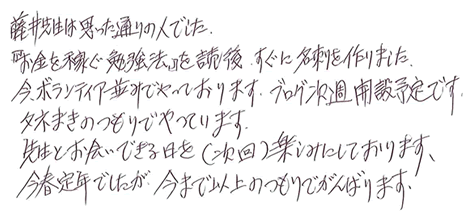 藤井先生は思った通りの人でした.
『お金を稼ぐ勉強法』を読後、すぐに名刺を作りました.
今、ボランティア並みでやっております. ブログ次週開設予定です.
タネまきのつもりでやっています.
先生とお会いできる日を(次回)楽しみにしております、
今春定年でしたが 今まで以上のつもりでがんばります.